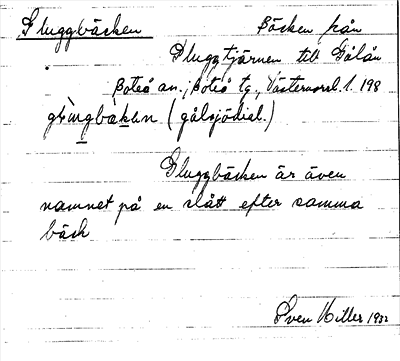 Gluggbäcken Bäcken från
Gluggtjärnen till Gålån
Boteå sn.; Boteå tg., Västernorrl. l. 198
(gålsjödial.)
Gluggbäcken är även
namnet på en slått efter samma
bäck
Sven Hiller 1932